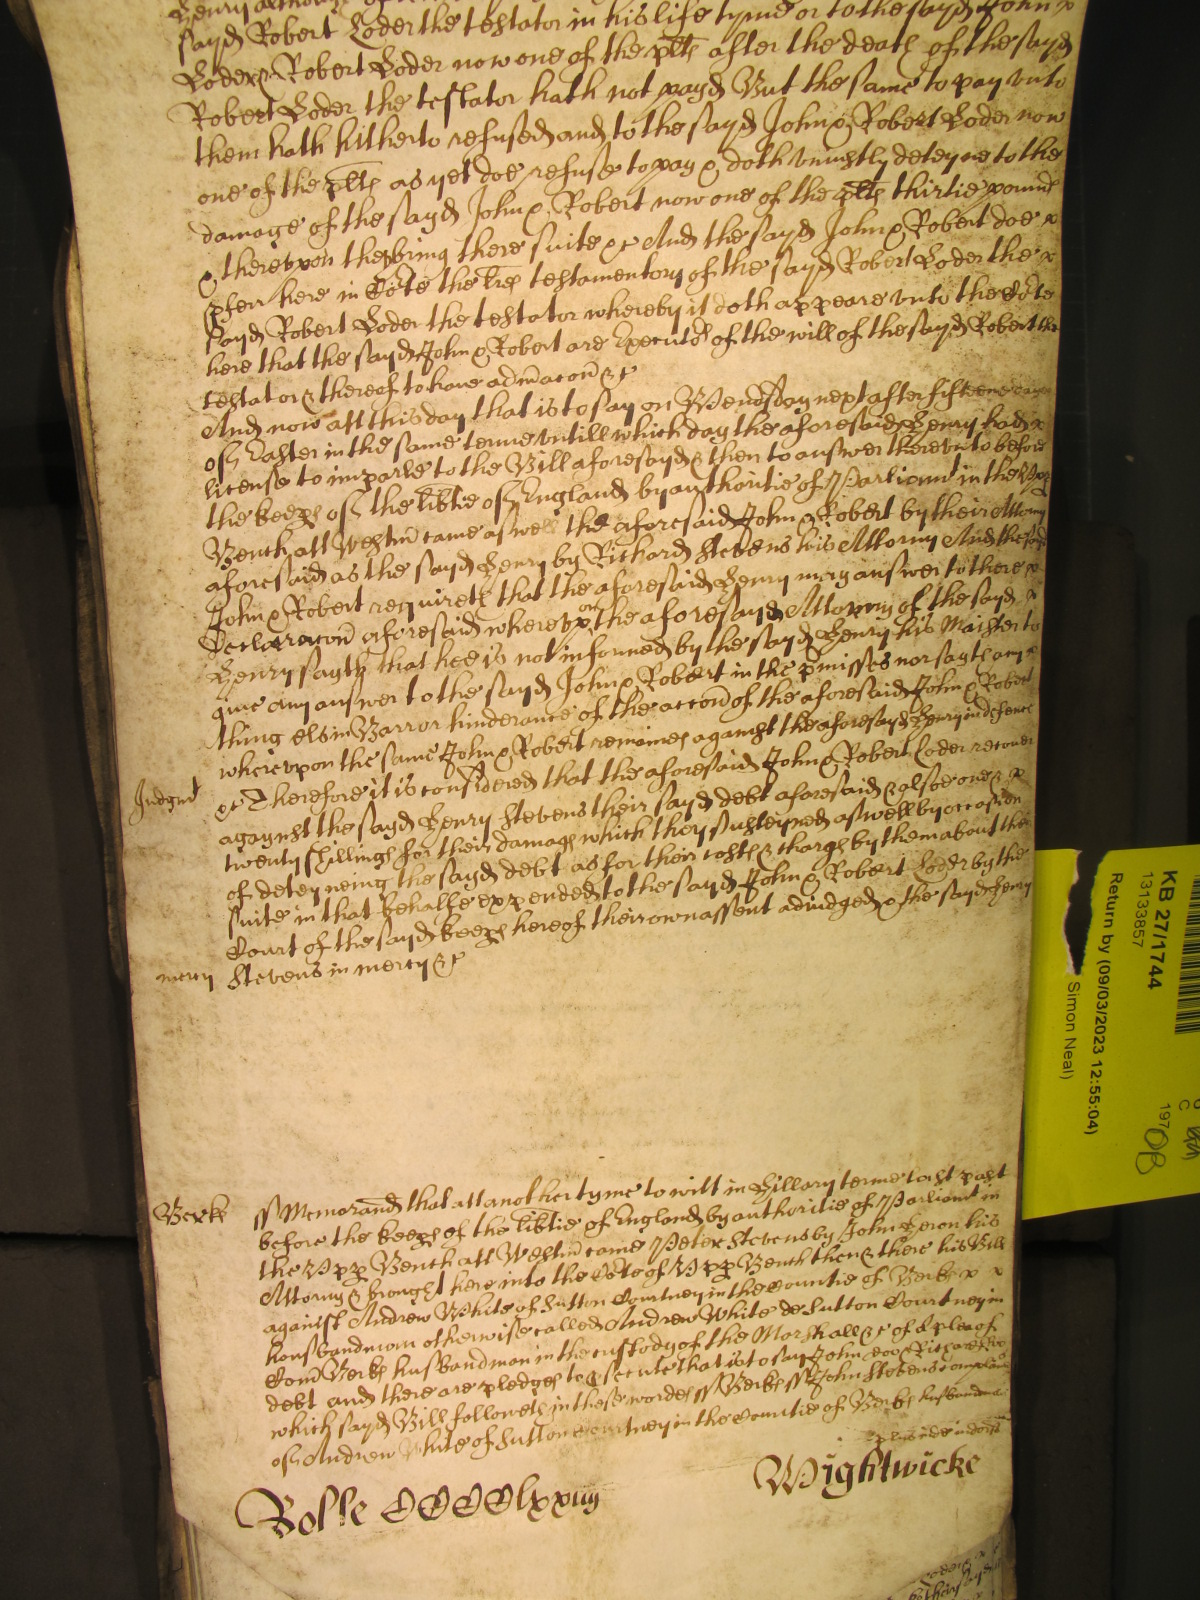 sayd Robert Loder the testator in his life tyme or to the sayd John x
Loder & Robert Loder now one of the plts after the death of the sayd
Robert Loder the testator hath not payd But the same to pay unto
them hath hitherto refused and to the sayd John & Robert Loder now
one of the plts as yet doe refuse to pay & doth uniustly deteyne to the
damage of the sayd John & Robert now one of the plts thirtie pound
& thereupon they bring there suite &c And the sayd John & Robert doe x
pferr here in Cote the tres testamentory of the sayd Robert Loder the x
sayd Robert Loder the testator whereby it doth appeare unto the Cote
here that the sayd John & Robert are Executrs of the will of the sayd Robert the
testator & thereof to have admacon &c
And now att this day that is to say on Wensday next after fifteene dayes
of Easter in the same terme untill which day the aforesaid Henry had x
license to imparle to the Bill aforesayd & then to answer thereunto before
the keeps of the libtie of England by authoritie of Parliamt in the Upp
Bench att Westm came aswell the aforesaid John & Robert by their Attorny
aforesaid as the sayd Henry by Richard Stevens his Attorny And the sayd
John & Robert requireth that the aforesaid Henry may answer to there x
Declaracon aforesaid whereupon the aforesayd Attorny of the sayd x
Henry sayth that hee is not informed by the sayd Henry his Maister to
give any answer to the sayd John & Robert in the pmisses nor sayth any x
thing els in Barr or hinderance of the accon of the aforesaid John & Robert
whereupon the same John & Robert remaines against the aforesayd Henry indefence
Judgmt &c Therefore it is considered that the aforesaid John & Robert Loder recover
agaynst the sayd Henry Stevens their sayd debt aforesaid & alsoe one & x
twenty shillings for their damags which they susteyned aswell by occasion
of deteyneing the sayd debt as for their costs & chargs by them about their
suite in that behalfe expended to the sayd John & Robert Loder by the
Court of the sayd keeps here of their own assent adiudged & the sayd Henry
mercy Stevens in mercy &c
Berks ss Memorand that att another tyme to witt in Hillary terme last past
before the keeps of the libtie of England by authoritie of Parliamt in
the Upp Bench att Westm came Peter Stevens by John Heron his
Attorny & brought here into the Cote of Upp Bench then & there his Bill
against Andrew White of Sutton Courtney in the Countie of Berks x x
husbandman otherwise called Andrew White de Sutton Courtney in
Com Berks husbandman in the custody of the Marshall &c of a plea of
debt and there are pledges to psecute that is to say John doo & Richard Roo
which sayd Bill followeth in these words ss Berks ss John Stevens complaines
of Andrew White of Sutton Courtney in the Countie of Berks husbandman
Rolle CCCClxxiiij
Wightwicke
KB 27/1744
13133857
Return by (09/03/2023 12:55:04)
Simon Neal)